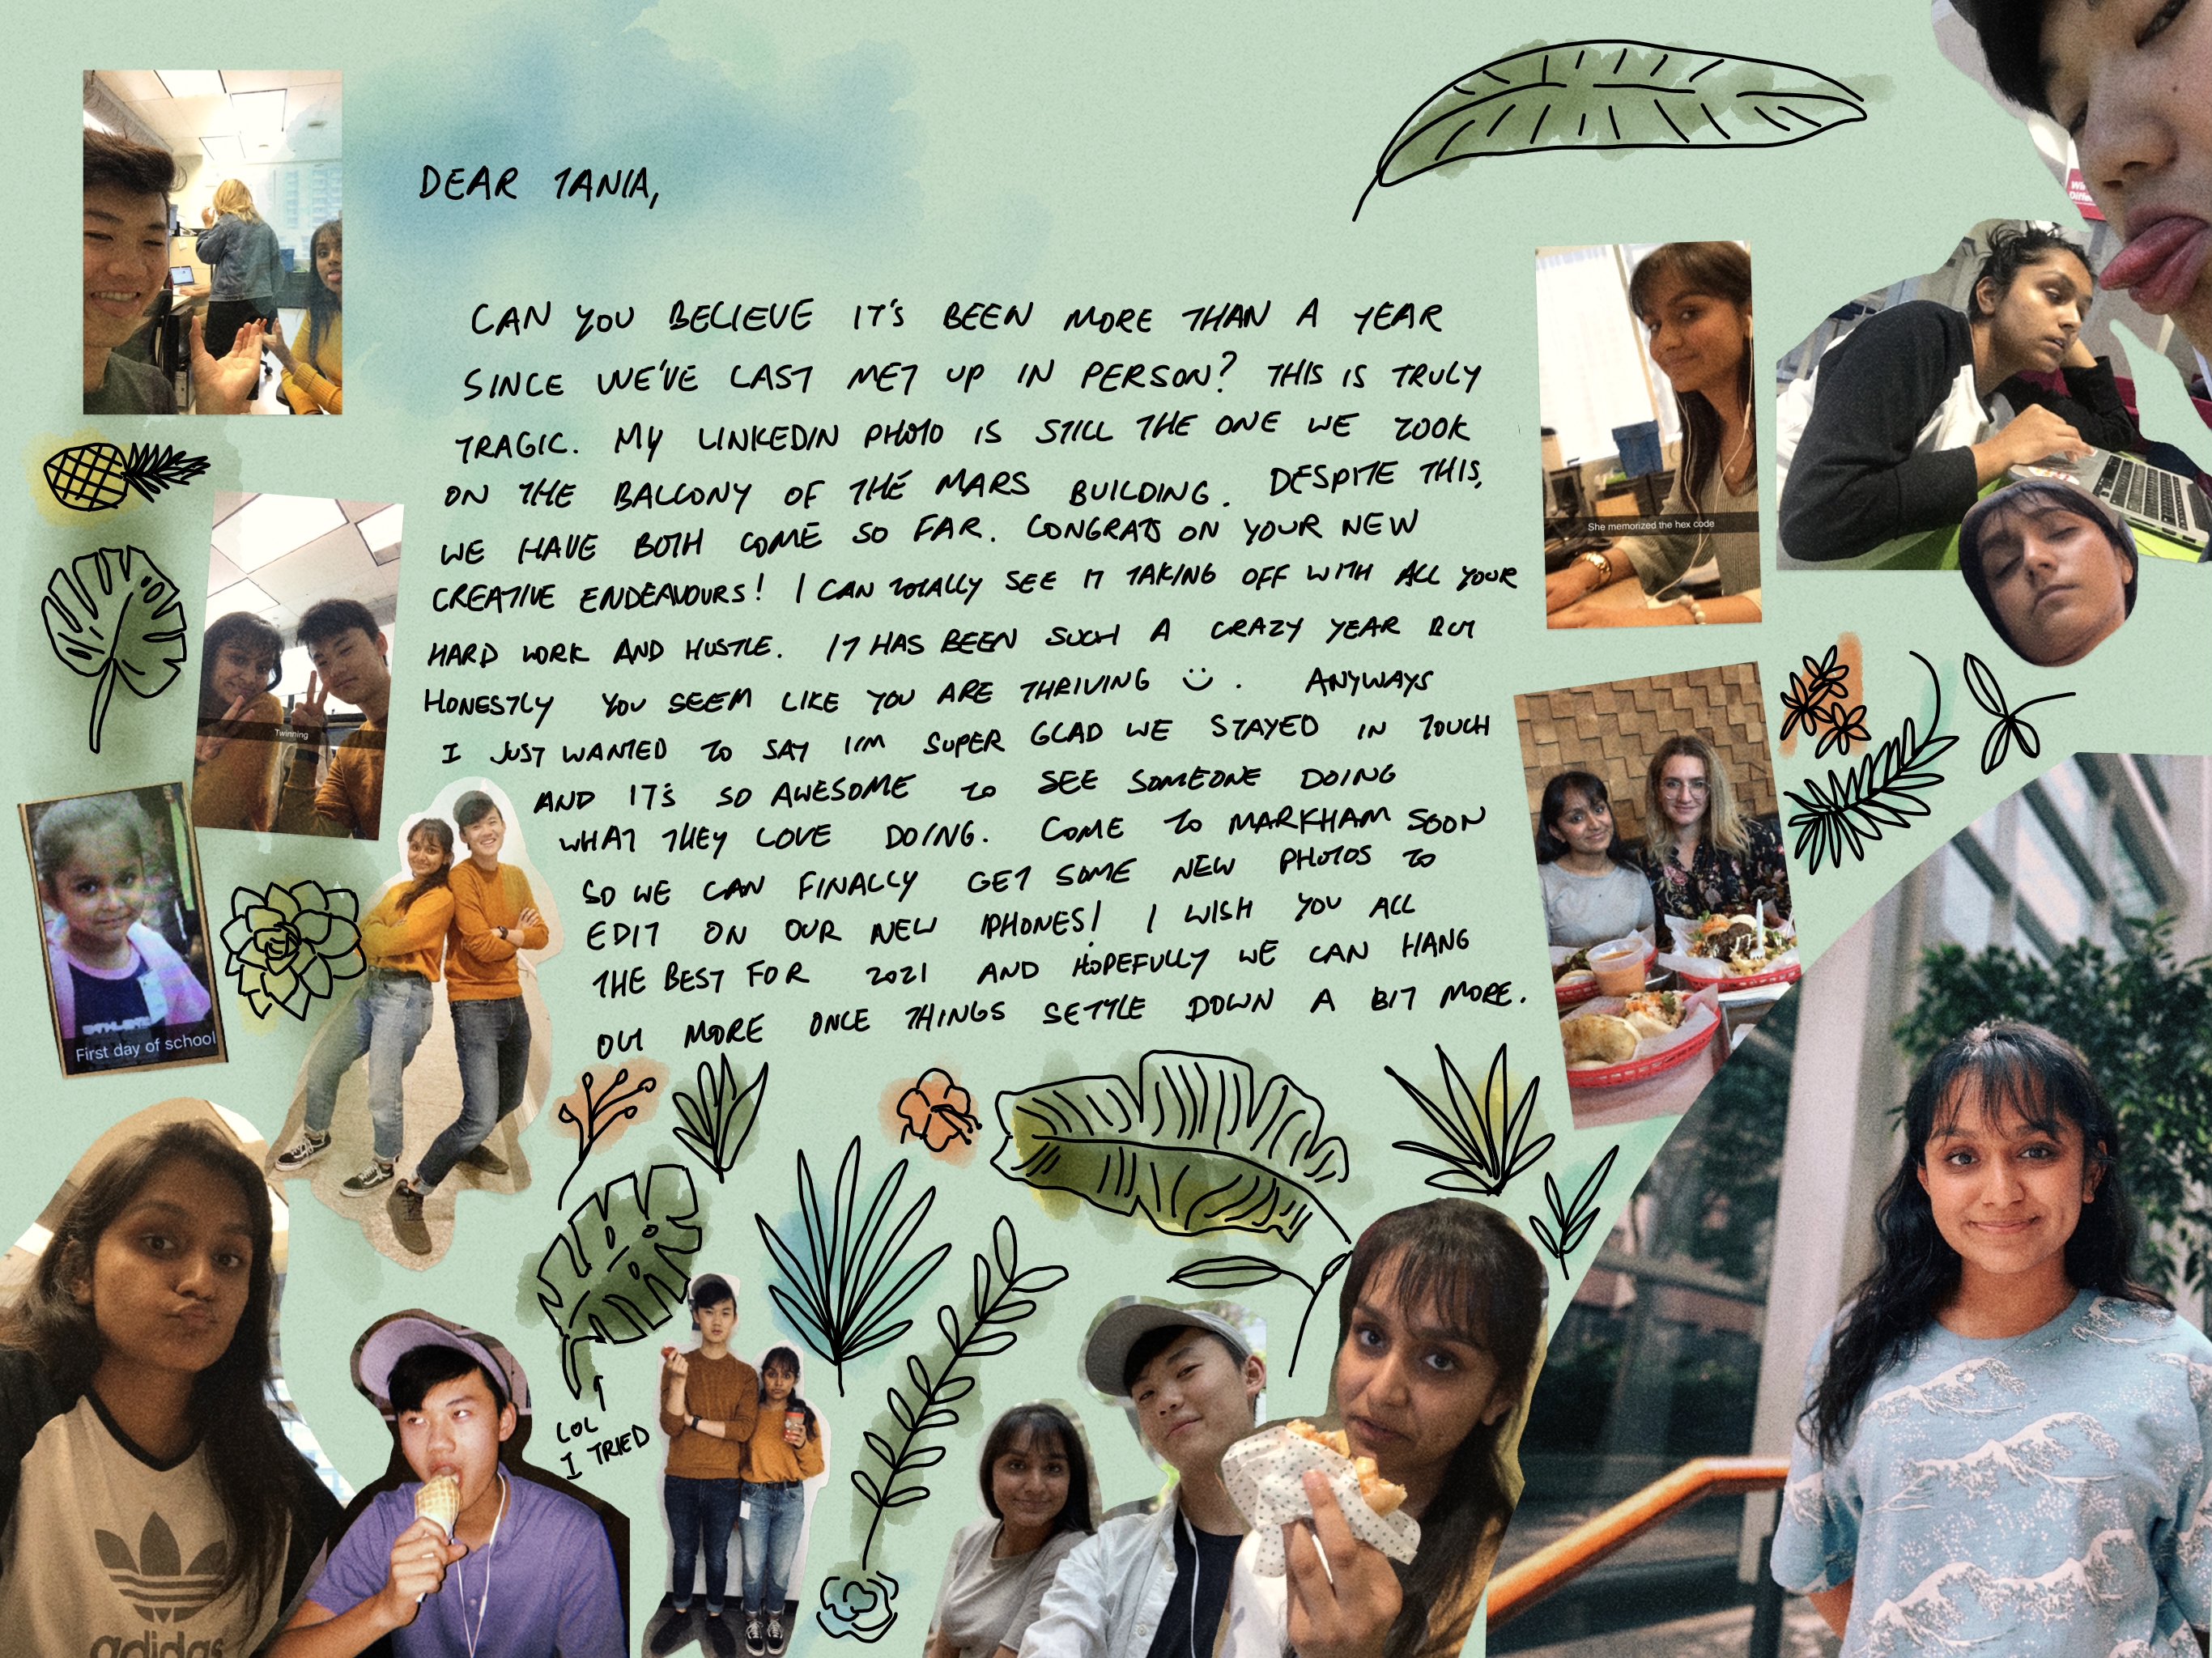 DEAR TANIA,
CAN YOU BELIEVE IT'S BEEN MORE THAN A YEAR
SINCE WE'VE LAST MET UP IN PERSON? THIS IS TRULY
TRAGIC. MY LINKEDIN PHOTO IS STILL THE ONE WE TOOK
ON THE BALCONY OF THE MARS BUILDING. DESPITE THIS,
WE HAVE BOTH COME SO FAR. CONGRATS ON YOUR NEW
CREATIVE ENDEAVOURS! I CAN TOTALLY SEE IT TAKING OFF WITH ALL YOUR
HARD WORK AND HUSTLE. IT HAS BEEN SUCH A CRAZY YEAR BUT
HONESTLY YOU SEEM LIKE YOU ARE THRIVING :). ANYWAYS
I JUST WANTED TO SAY I'M SUPER GLAD WE STAYED IN TOUCH
AND IT'S SO AWESOME TO SEE SOMEONE DOING
WHAT THEY LOVE DOING. COME TO MARKHAM SOON
SO WE CAN FINALLY GET SOME NEW PHOTOS TO
EDIT ON OUR NEW IPHONES! I WISH YOU ALL
THE BEST FOR 2021 AND HOPEFULLY WE CAN HANG
OUT MORE ONCE THINGS SETTLE DOWN A BIT MORE.
She memorized the hex code
Twinning
First day of school
LOL
I TRIED
adidas